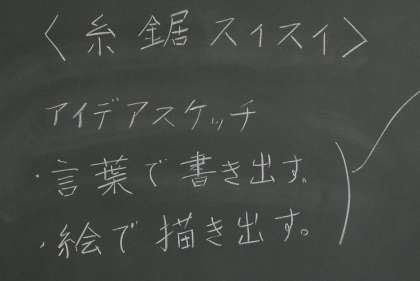 〈糸鋸スイスイ〉
アイデアスケッチ
・言葉で書き出す。
・絵で描き出す。